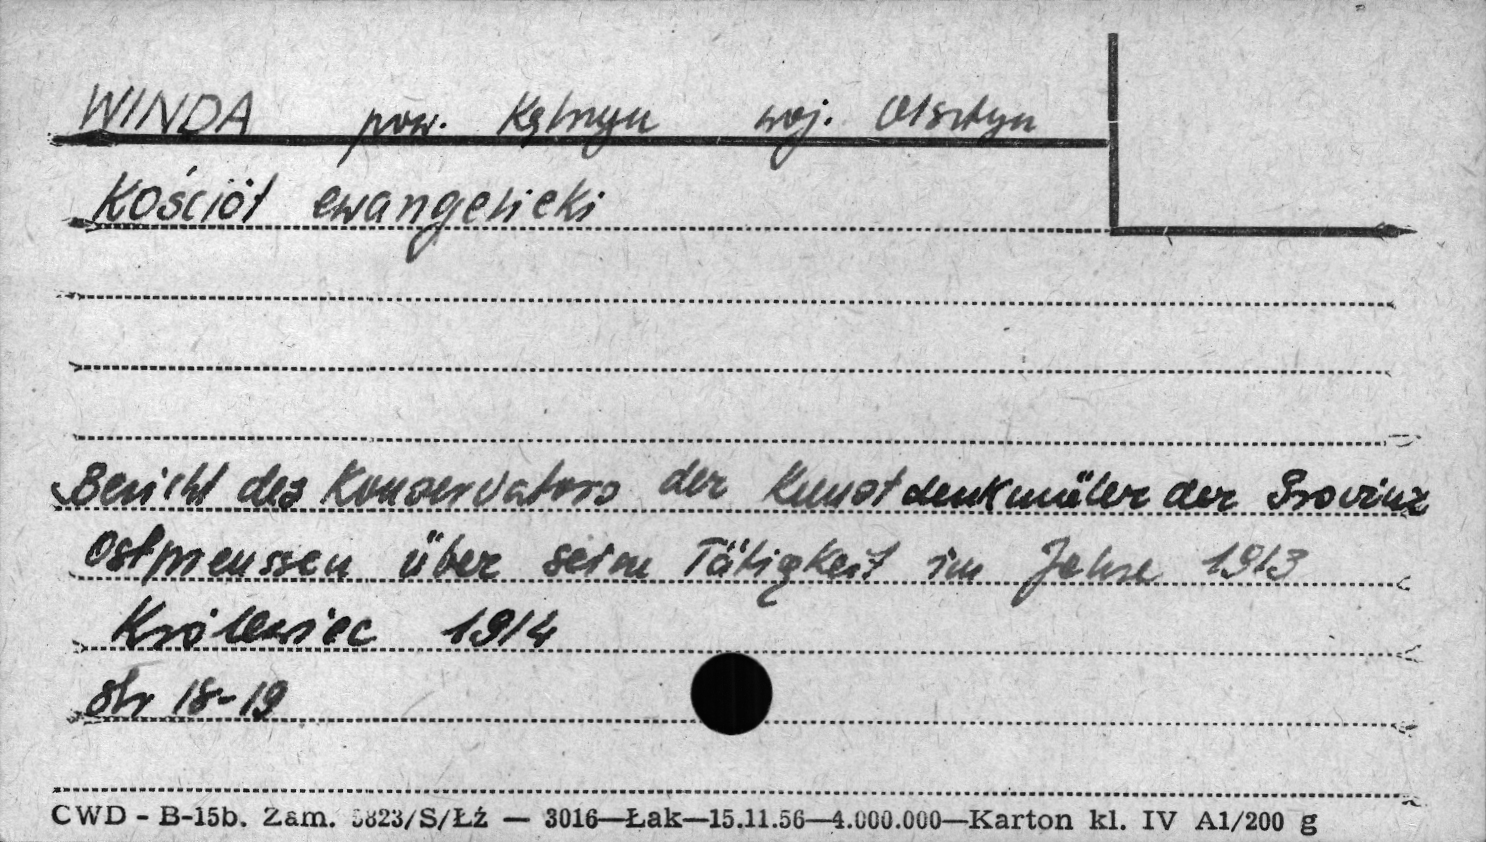 WINDA pow. Kętrzyn woj. Olsztyn
Kościół ewangelicki
Bericht des Konservators der Kunstdenkmäler der Provinz
Ostpreussen über seine Tätigkeit im Jahre 1913
Królewiec 1914
str 18-19
CWD - B-15b. Zam. 5823/S/Łź — 3016—Łak—15.11.56—4.000.000—Karton kl. IV A1/200 g